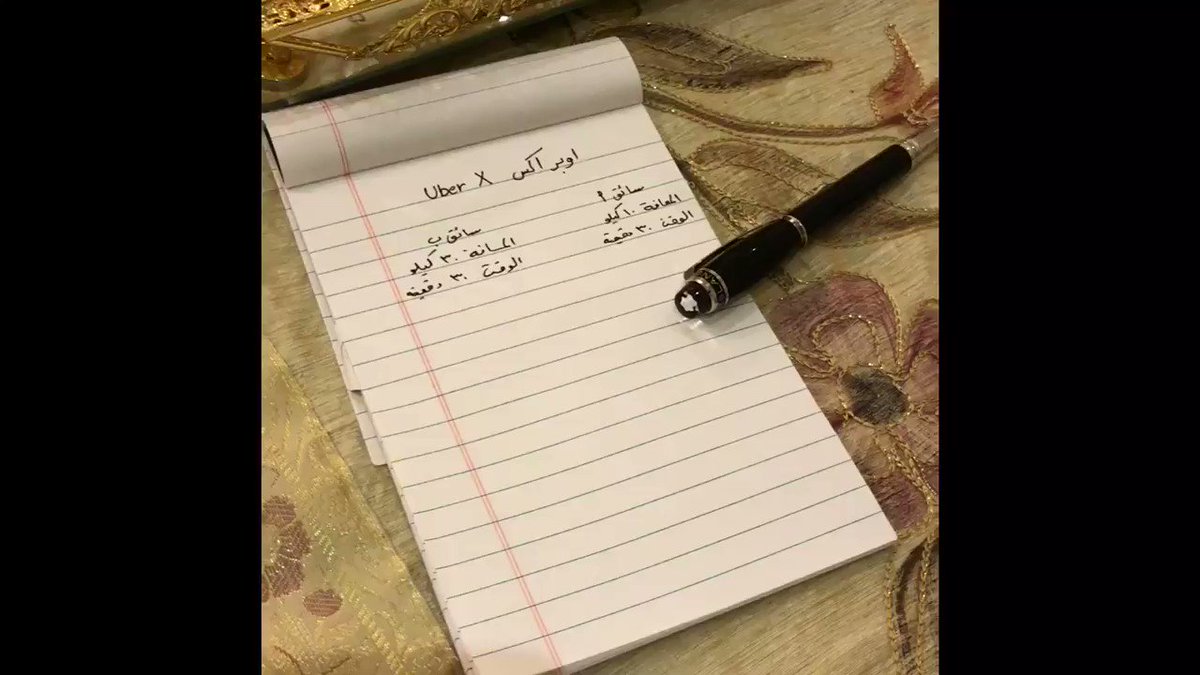 اوبر اكس Uber X
سائق أ
المسافة ١٠ كيلو
الوقت ٣٠ دقيقة
سائق ب
المسافة ٣٠ كيلو
الوقت ٣٠ دقيقة